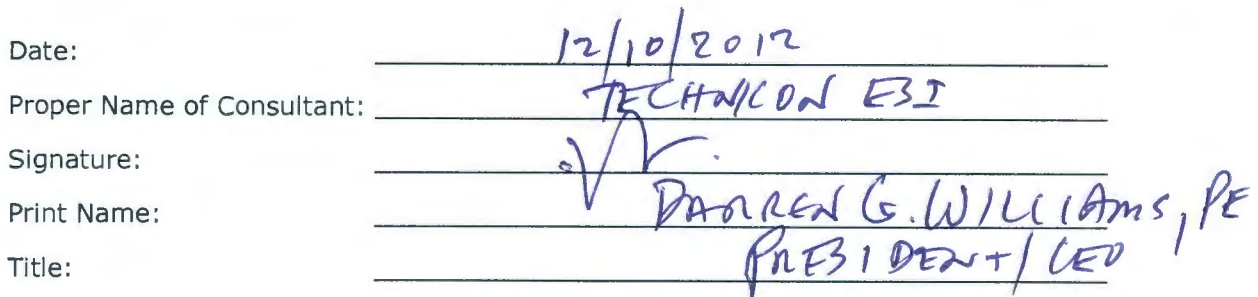 Date: 12/10/2012
Proper Name of Consultant: TECHNICON EBI
Signature:
Print Name: DARREN G. WILLIAMS, PE
Title: PRESIDENT/CEO